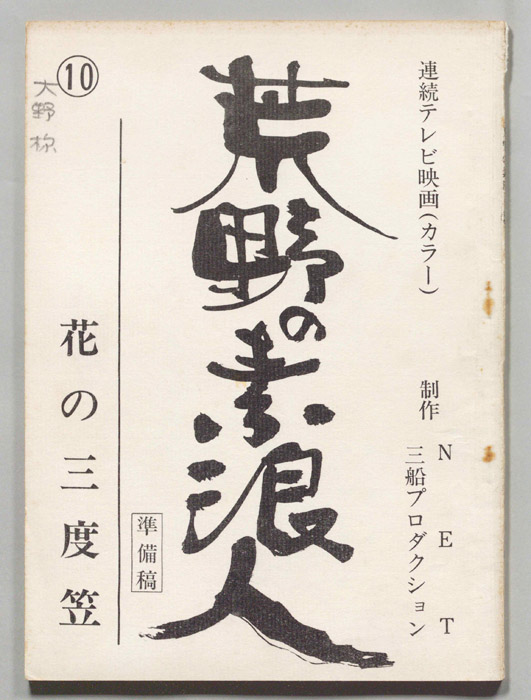 連続テレビ映画(カラー)
制作 NET
三船プロダクション
荒野の素浪人
準備稿
花の三度笠
⑩
大野